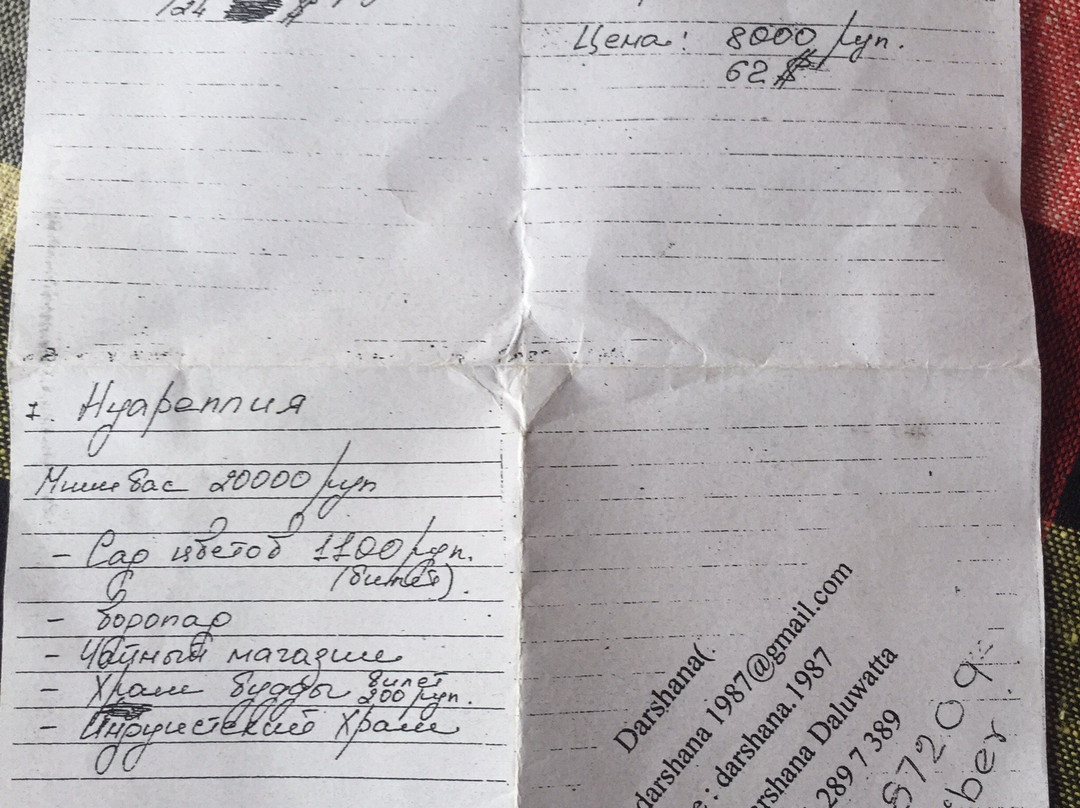 124 $
Цена: 8000 руп.
62$
I. Нуареллия
Минибас 20000 руп
- Сад цветов 1100 руп.
(билет).
- Чайный магазин
- Храм будды билет
200 руп.
- Индуистский Храм
Darshana(.
darshana 1987@gmail.com
: darshana.1987
Daluwatta
289 7 389
57209